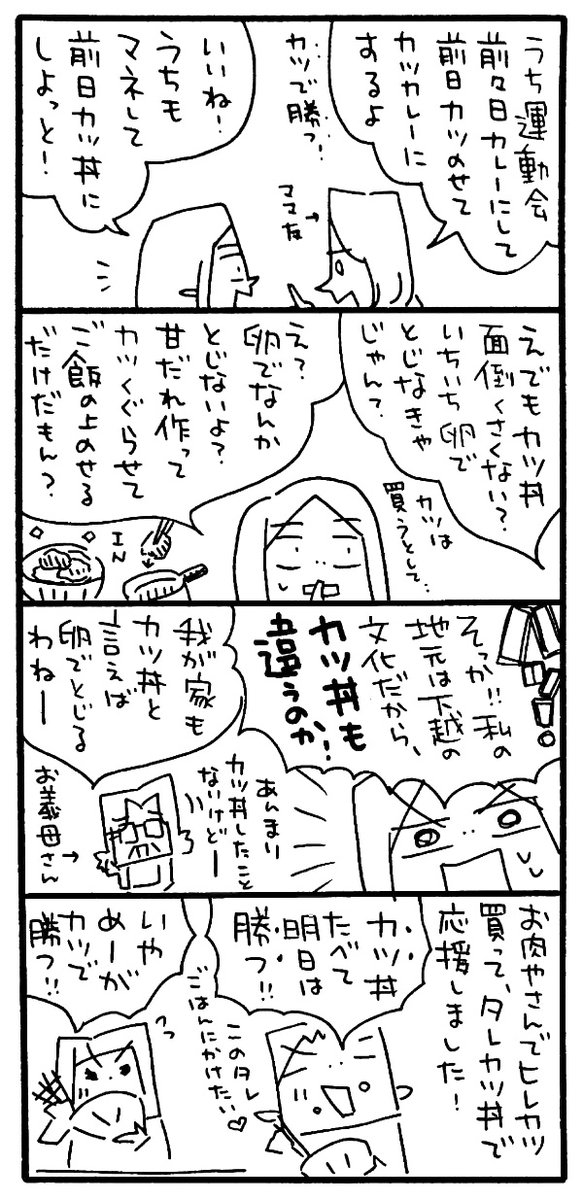 うち運動会
前々日カレーにして
前日カツのせて
カツカレーに
するよ
カツで勝つ!
ママ友
いいねー!
うちも
マネして
前日カツ丼に
しよっと!
えでもカツ丼
面倒くさくない?
いちいち卵で
とじなきゃ
じゃん?
カツは
買うとして…
え?
卵でなんか
とじないよ?
甘だれ作って
カツくぐらせて
ご飯の上のせる
だけだもん?
IN
そっか!!私の
地元は下越の
文化だから、
カツ丼も
違うのか!
我が家も
カツ丼と
言えば
卵でとじる
わねー
あんまり
カツ丼したこと
ないけどー
お義母さん
お肉やさんでヒレカツ
買って、タレカツ丼で
応援しました!
カツ丼
たべて
明日は
勝つ!!
このタレ
ごはんにかけたい♡
いや
めーが
カツで
勝つ!!